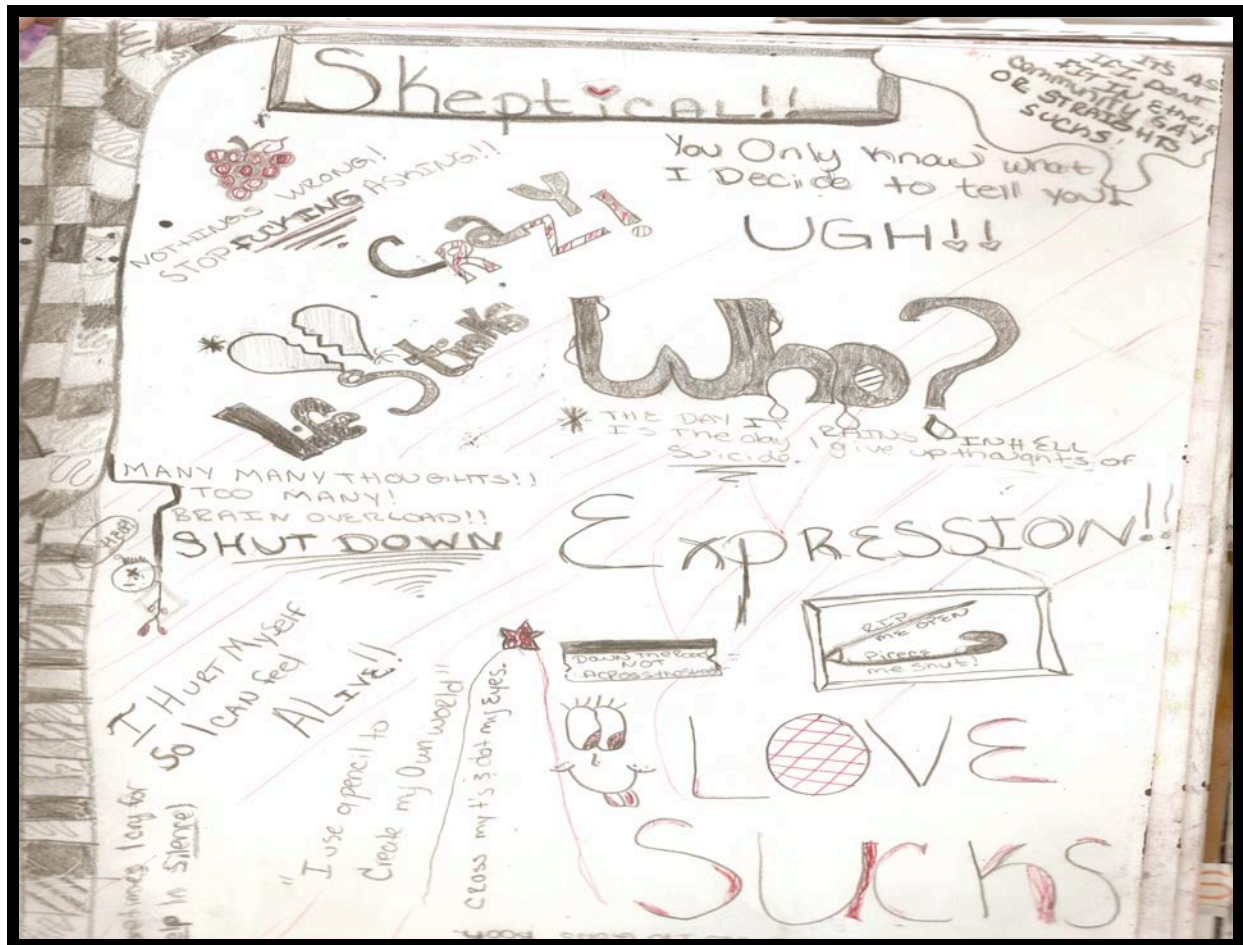 Skeptical!!
IT'S AS
IF I DONT
FIT IN Either
Community GAY
OR STRAIGHTS
SUCKS!
NOTHING'S WRONG!!
STOP FUCKING ASKING!!
You Only know what
I Decide to tell you!
CRAZY!
UGH!!
Life Stinks
Who?
* THE DAY IT RAINS IN HELL
IS The day I give up thoughts of
Suicide.
MANY MANY THOUGHTS!!
TOO MANY!
BRAIN OVERLOAD!!
SHUT DOWN
ExpRESSION!!
RIP
ME OPEN
Pierce
me shut!
DOWN THE ROAD
NOT
ACROSS the street
I HURT MYself
So I CAN feel
ALIVE!!
"I use a pencil to
Create my Own world!"
CROSS my t's & dot my Eyes.
LOVE
SUCKS
I cry for
help In Silence)